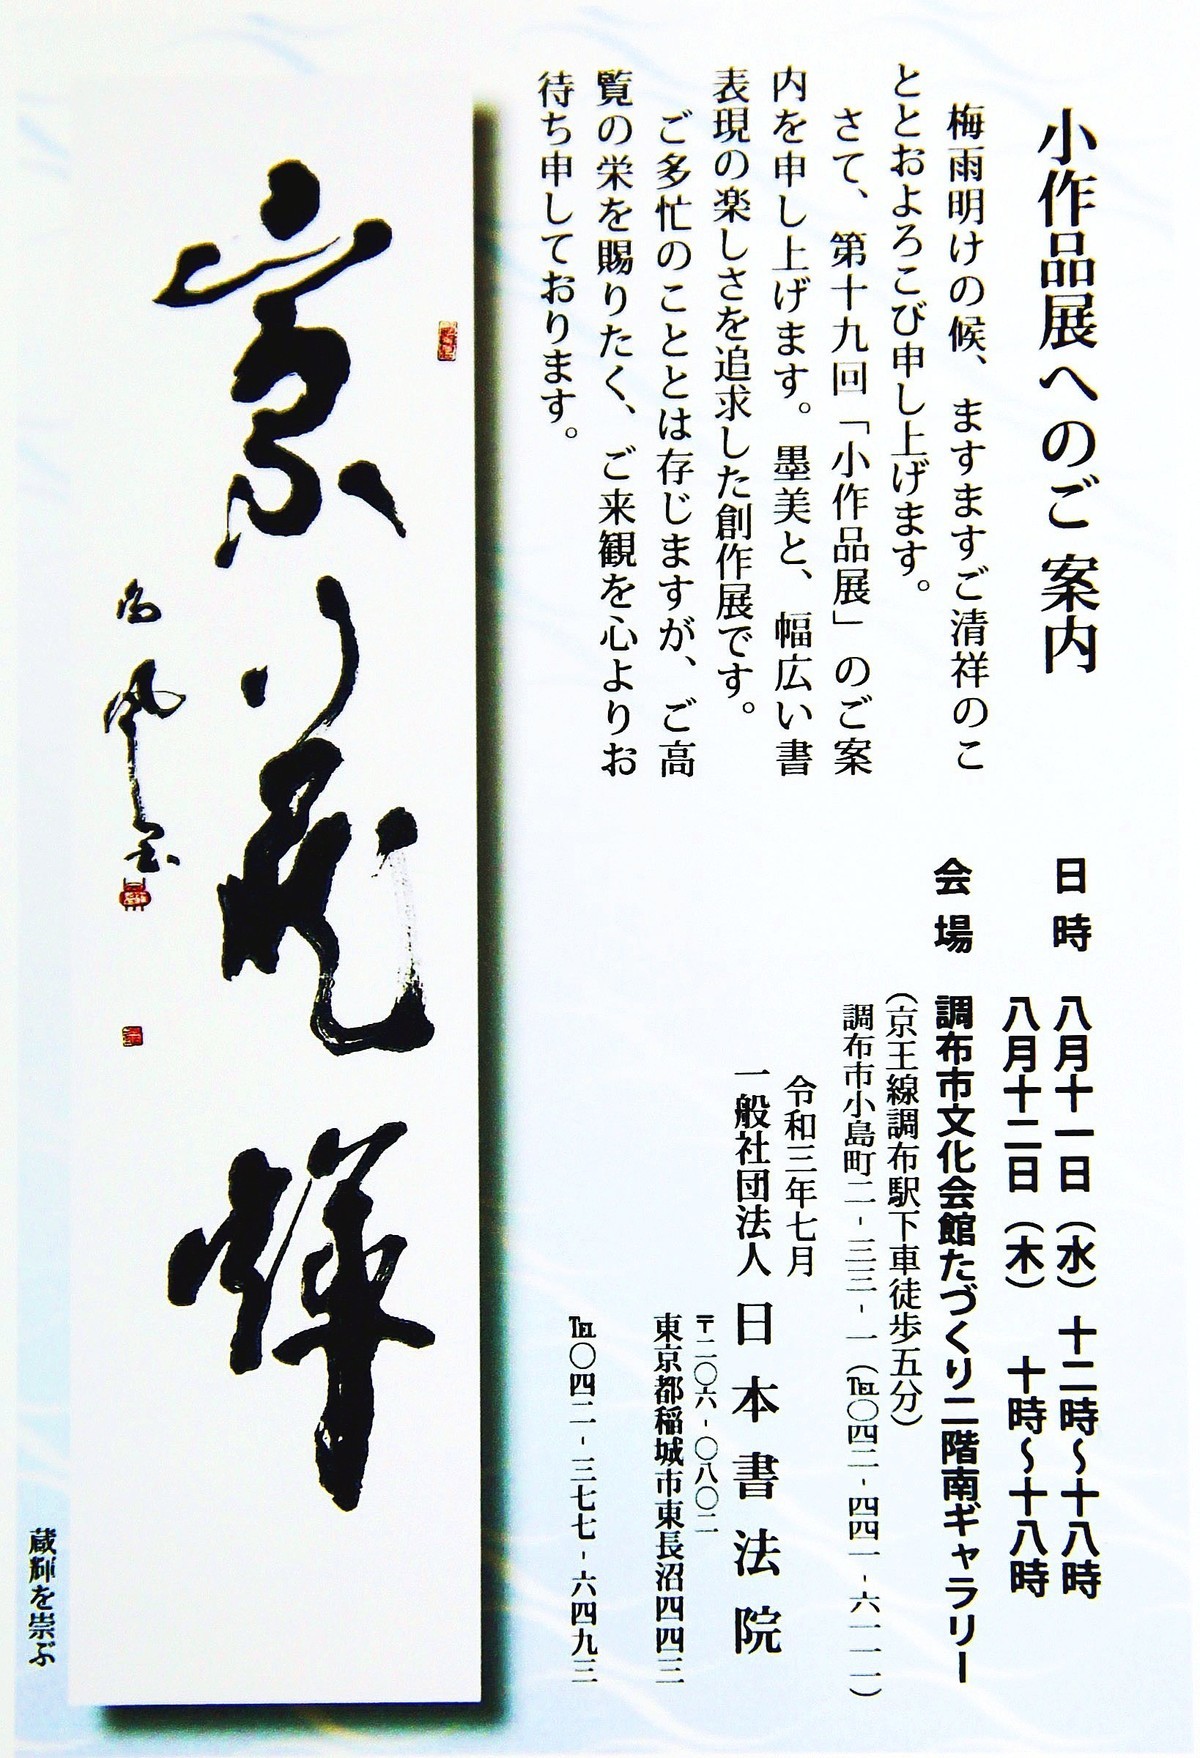 小作品展へのご案内
梅雨明けの候、ますますご清祥のこ
ととおよろこび申し上げます。
さて、第十九回「小作品展」のご案
内を申し上げます。墨美と、幅広い書
表現の楽しさを追求した創作展です。
ご多忙のこととは存じますが、ご高
覧の栄を賜りたく、ご来観を心よりお
待ち申しております。
日時 八月十一日(水)十二時〜十八時
八月十二日(木) 十時〜十八時
会場 調布市文化会館たづくり二階南ギャラリー
(京王線調布駅下車徒歩五分)
調布市小島町二-三三-一(℡〇四二-四四一-六一一一)
令和三年七月
一般社団法人 日本書法院
〒二〇六-〇八〇二
東京都稲城市東長沼四四三
℡〇四二-三七七-六四九三
崇蔵輝
蔵輝を崇ぶ